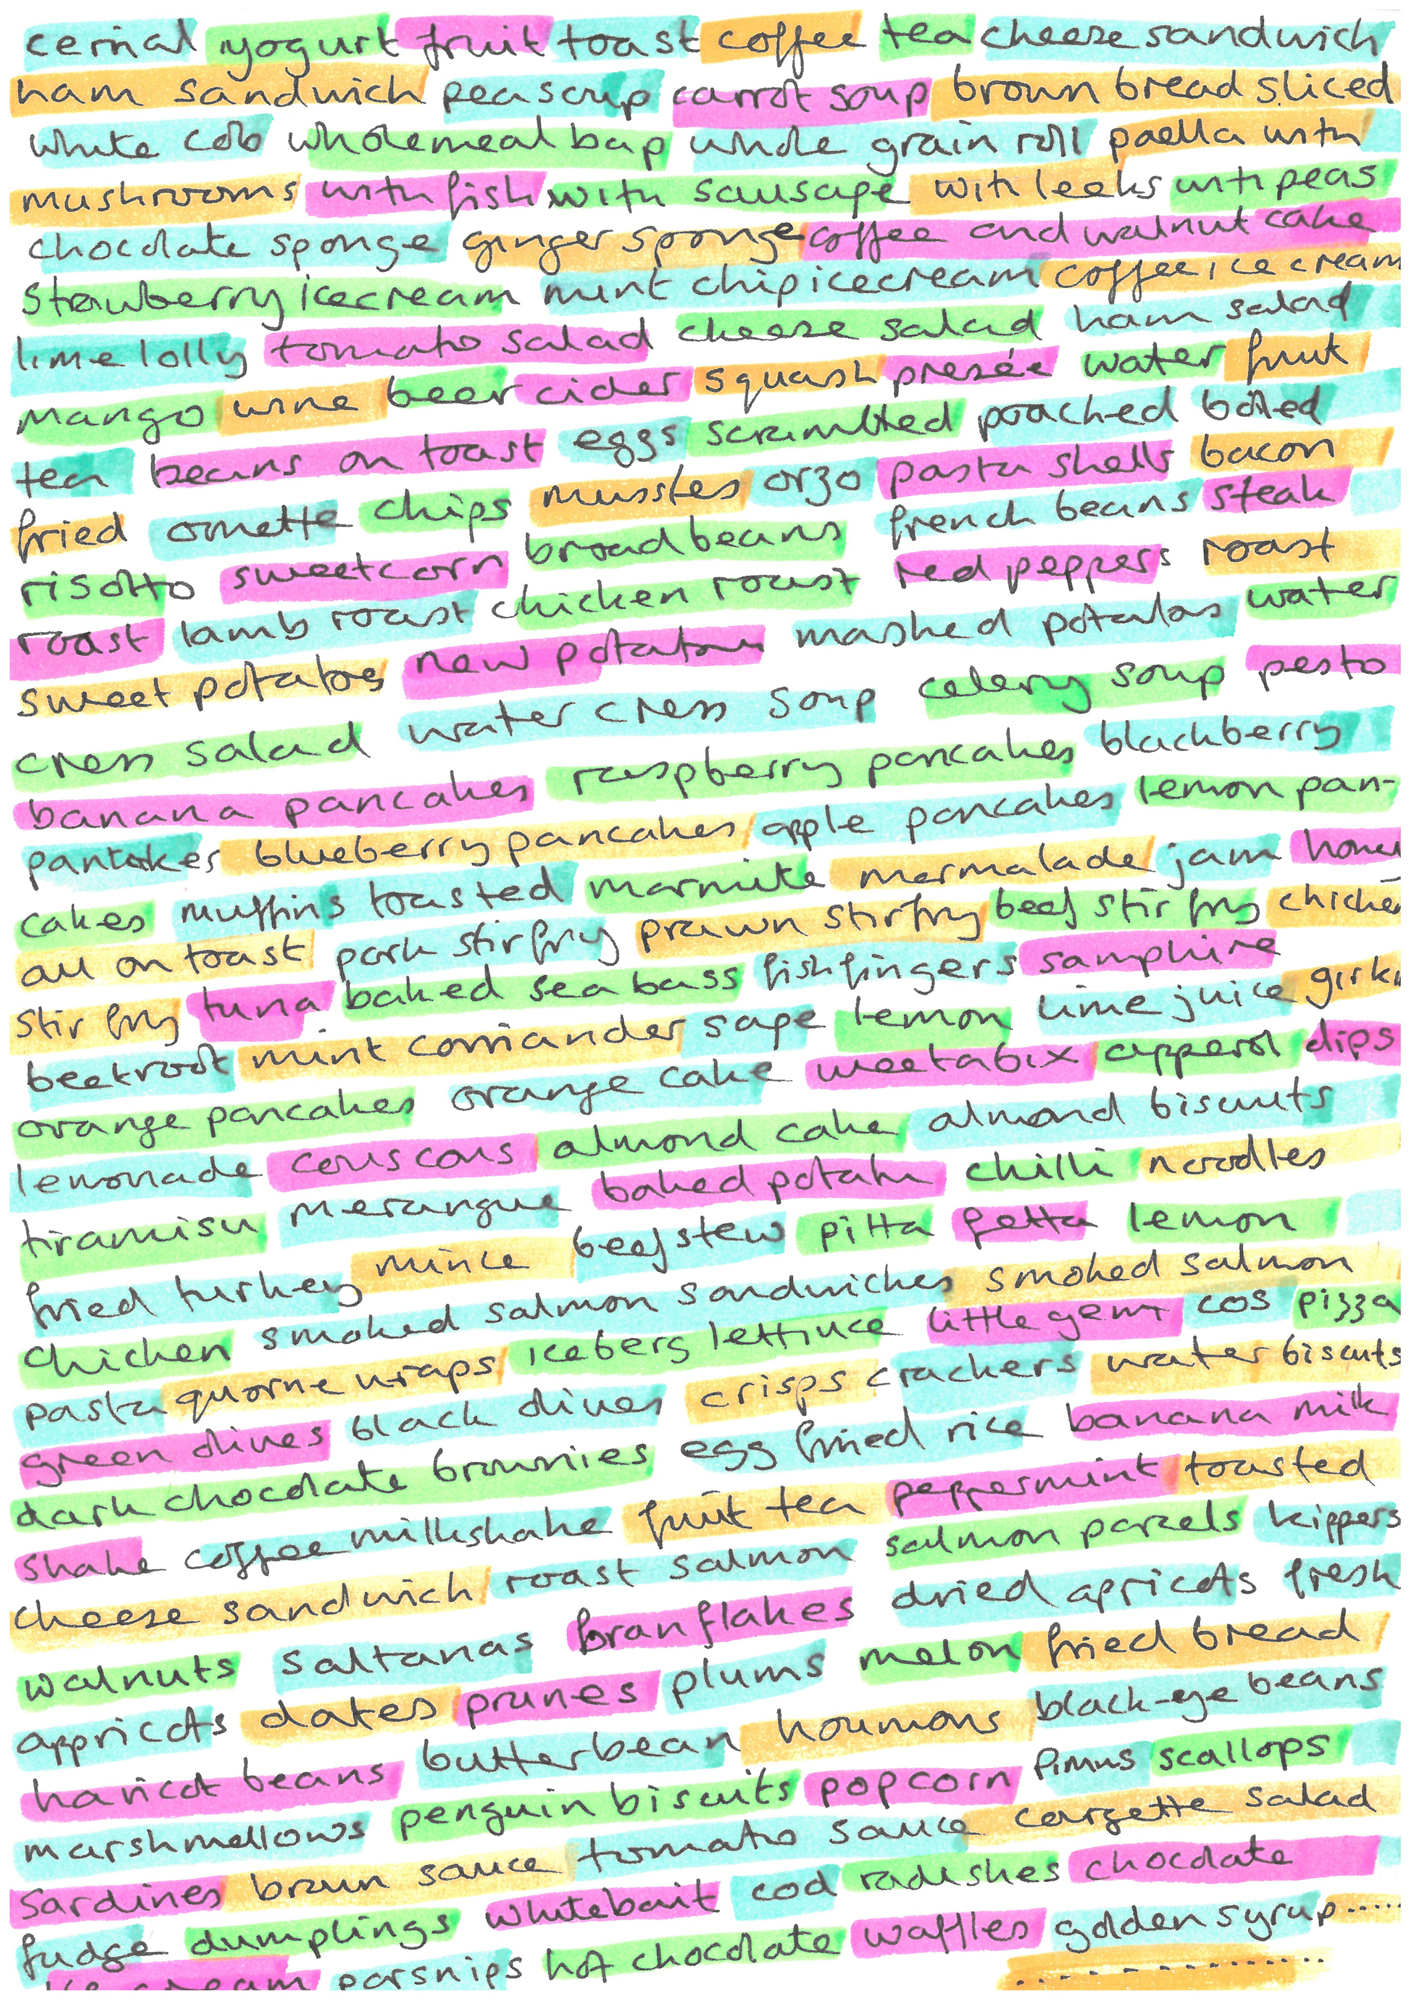 cerial yogurt fruit toast coffee tea cheese sandwich
ham sandwich pea soup carrot soup brown bread sliced
white cob wholemeal bap whole grain roll paella with
mushrooms with fish with sausage with leeks with peas
chocolate sponge ginger sponge coffee and walnut cake
strawberry icecream mint chip icecream coffee ice cream
lime lolly tomato salad cheese salad ham salad
mango wine beer cider squash presée water fruit
tea beans on toast eggs scrambled poached boiled
fried omelette chips mussles orzo pasta shells bacon
risotto sweetcorn broad beans french beans steak
roast lamb roast chicken roast red peppers roast
sweet potatoes new potatoes mashed potatoes water
cress salad water cress soup celery soup pesto
banana pancakes raspberry pancakes blackberry
pancakes blueberry pancakes apple pancakes lemon pan-
cakes muffins toasted marmite mermalade jam honey
all on toast pork stir fry prawn stir fry beef stir fry chicken
stir fry tuna baked sea bass fishfingers samphire
beetroot mint corriander sage lemon lime juice
orange pancakes orange cake weetabix apperol dips
lemonade couscous almond cake almond biscuits
tiramisu merangue baked potato chilli noodles
fried turkey mince beef stew pitta fetta lemon
chicken smoked salmon sandwiches smoked salmon
pasta quorne wraps iceberg lettuce little gem cos pizza
green olives black olives crisps crackers water biscuits
dark chocolate brownies egg fried rice banana milk
shake coffee milkshake fruit tea peppermint toasted
cheese sandwich roast salmon salmon parcels kippers
walnuts saltanas branflakes dried apricots fresh
appricots dates prunes plums melon fried bread
haricot beans butterbean houmous black-eye beans
marshmellows penguin biscuits popcorn pimms scallops
sardines brown sauce tomato sauce corgette salad
fudge dumplings whitebait cod radishes chocolate
ice cream parsnips hot chocolate waffles golden syrup.....